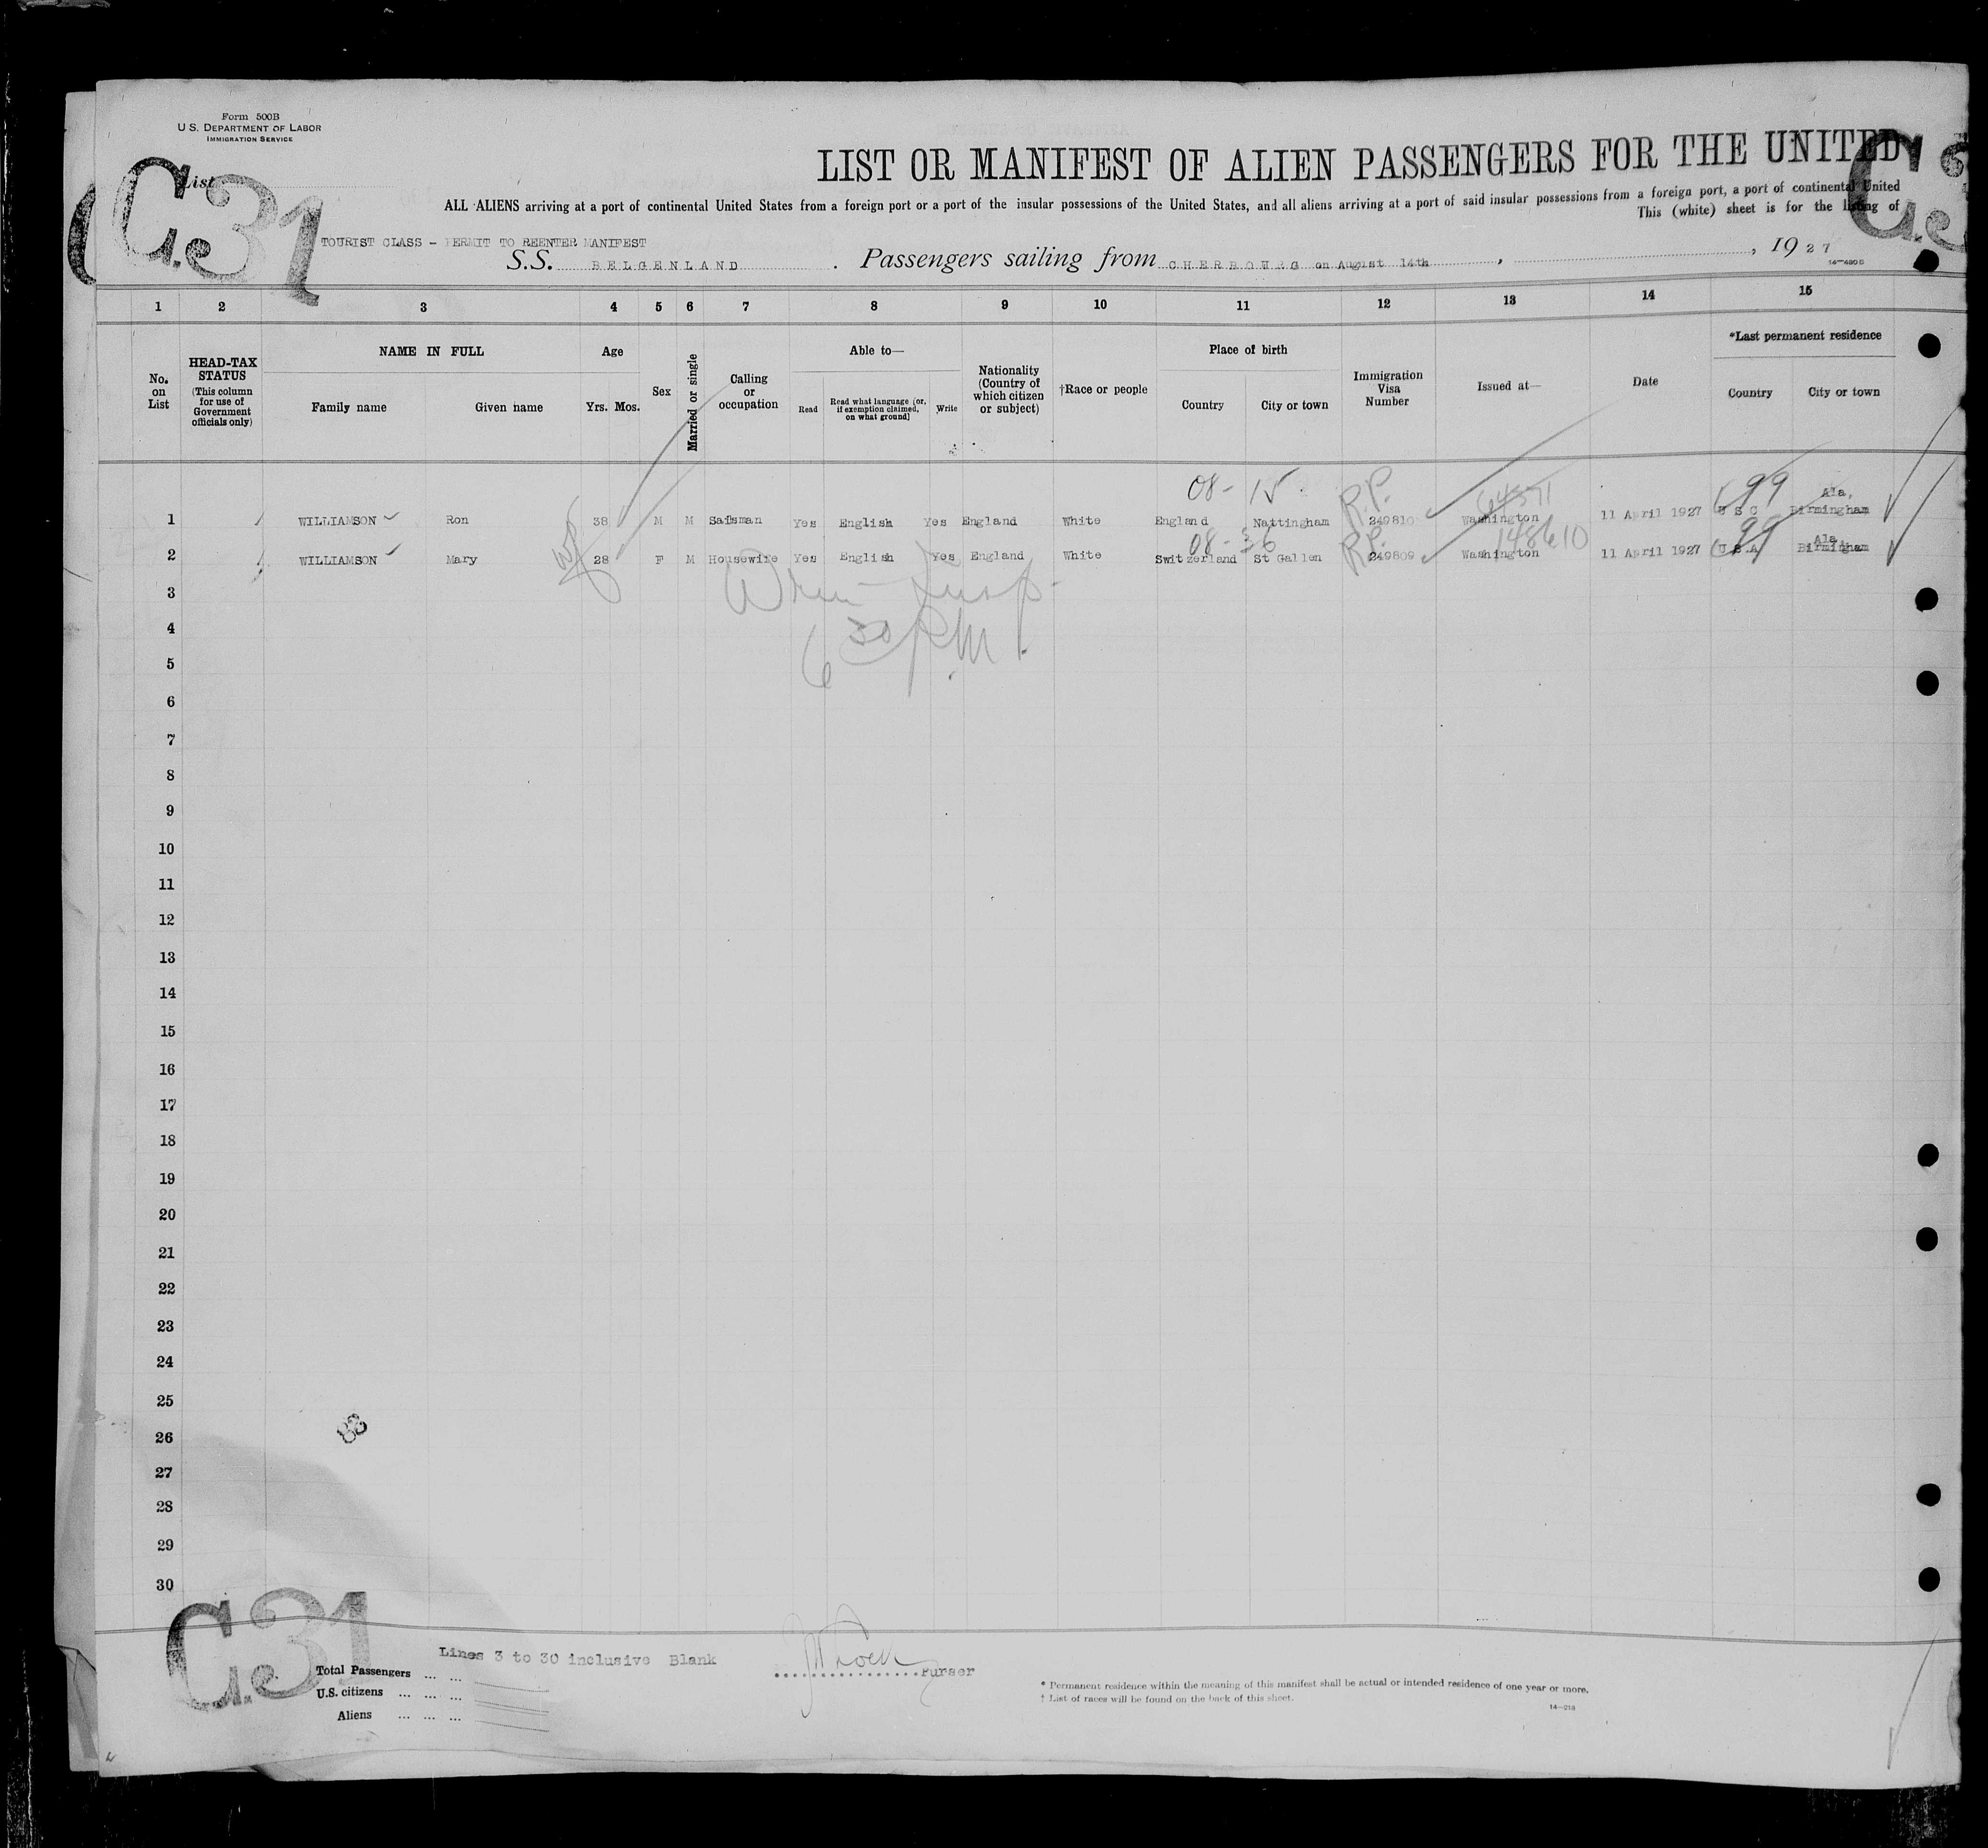 Form 500B
U.S. DEPARTMENT OF LABOR
IMMIGRATION SERVICE
C.31
List
LIST OR MANIFEST OF ALIEN PASSENGERS FOR THE UNITED
ALL ALIENS arriving at a port of continental United States from a foreign port or a port of the insular possessions of the United States, and all aliens arriving at a port of said insular possessions from a foreign port, a port of continental United
This (white) sheet is for the listing of
TOURIST CLASS - PERMIT TO REENTER MANIFEST
S.S. BELGENLAND. Passengers sailing from CHERBOURG on August 14th, 1927
14-430B
1 2 3 4 5 6 7 8 9 10 11 12 13 14 15
No. on List
HEAD-TAX STATUS (This column for use of Government officials only)
NAME IN FULL
Family name Given name
Age
Yrs. Mos.
Sex
Married or single
Calling or occupation
Able to—
Read Read what language [or, if exemption claimed, on what ground] Write
Nationality (Country of which citizen or subject)
†Race or people
Place of birth
Country City or town
Immigration Visa Number
Issued at—
Date
*Last permanent residence
Country City or town
08- 15 R.P. 99 Ala,
1 WILLIAMSON Ron 38 M M Salsman Yes English Yes England White England Nattingham 249810 Washington 11 April 1927 U S C Birmingham
08- 36 R.P. 148610 99 Ala,
2 WILLIAMSON Mary 28 F M Housewife Yes English Yes England White Switzerland St Gallen 249809 Washington 11 April 1927 U S A Birmingham
3
4
6 30 P.M.
5
6
7
8
9
10
11
12
13
14
15
16
17
18
19
20
21
22
23
24
25
26
27
28
29
30
C.31
Lines 3 to 30 inclusive Blank
Purser
Total Passengers ... ...
U.S. citizens ... ... ...
Aliens ... ... ...
* Permanent residence within the meaning of this manifest shall be actual or intended residence of one year or more.
† List of races will be found on the back of this sheet.
14-213